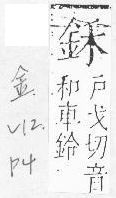 鉌
戶戈切音
和車鈴
金
V12.
P4